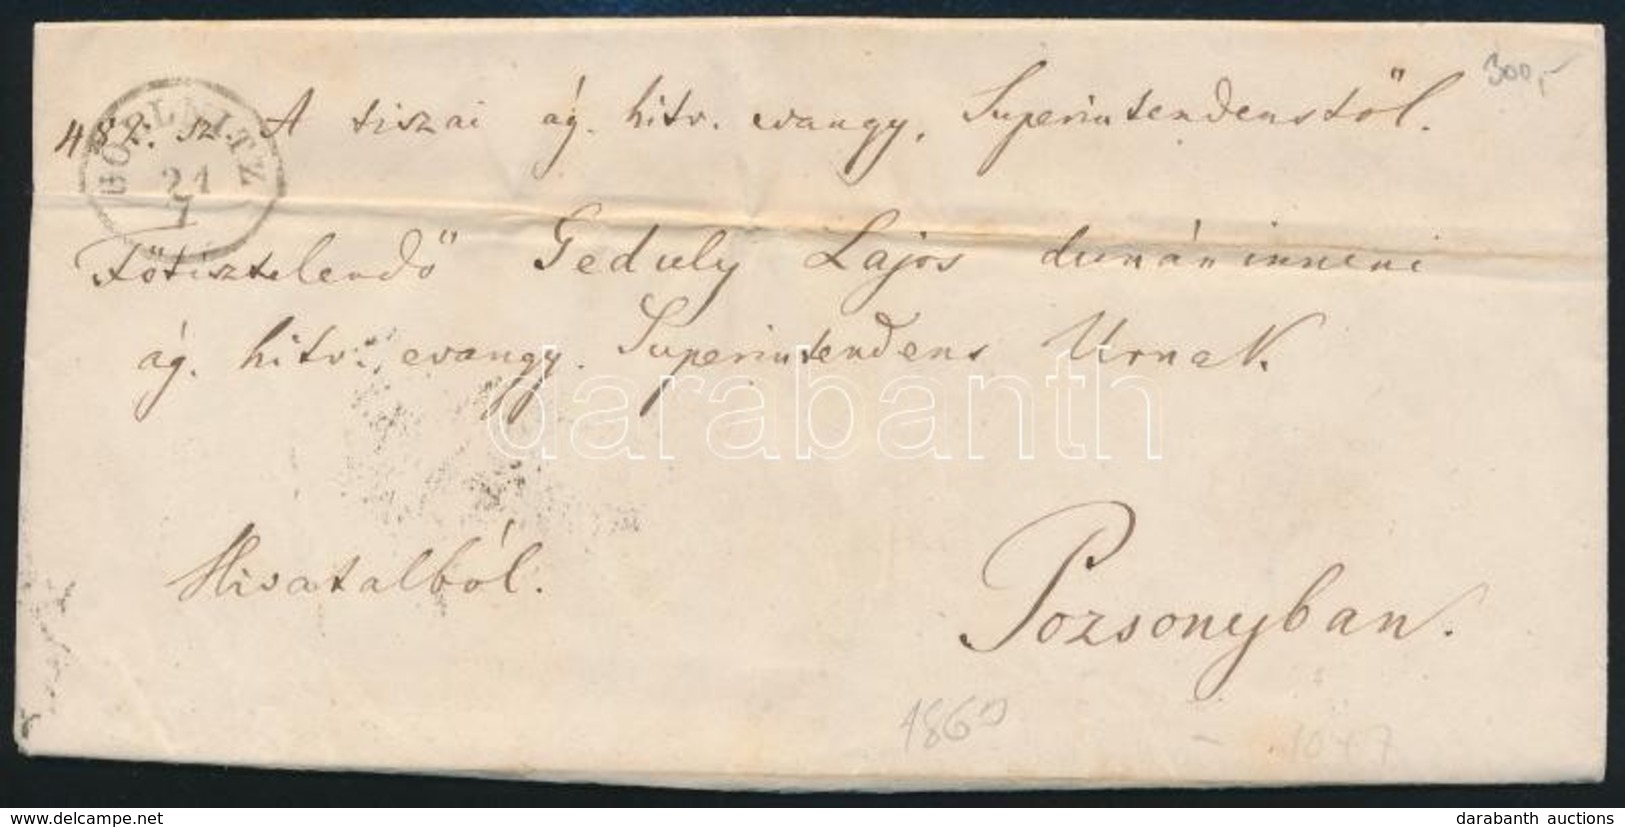 300,-
487. sz. A tiszai ág. hitv. evangy. Superintendenstől.
GÖLLNITZ
21
7
Főtisztelendő Geduly Lajos dunáninneni
ág. hitv. evangy. Superintendens Urnak
darabanth
Hivatalból.
Pozsonyban.
186
www.delcampe.net
darabanth auctions